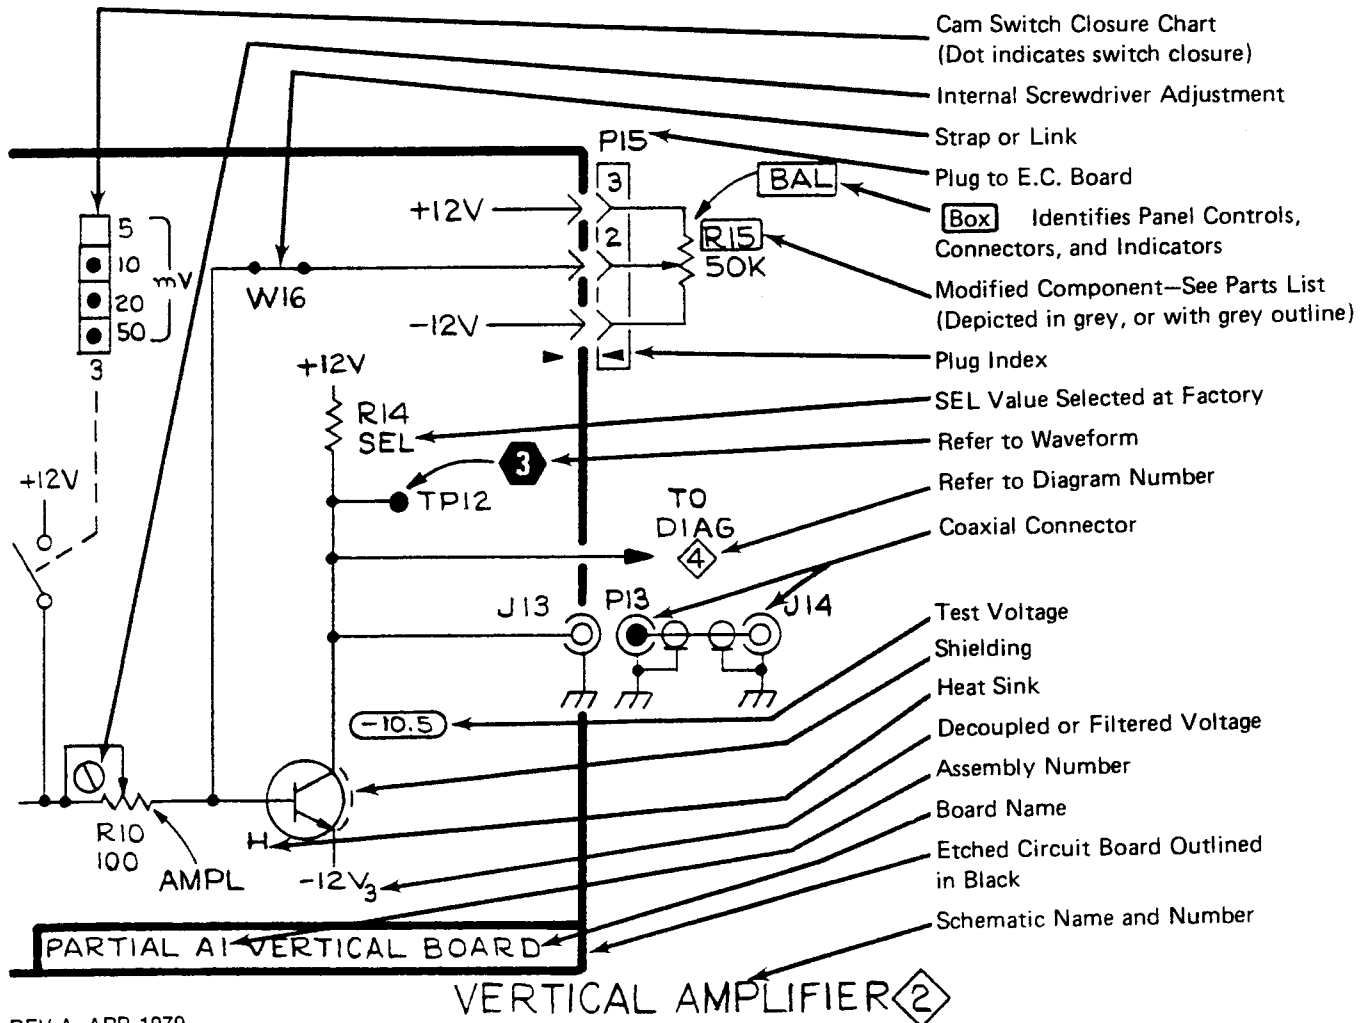 Cam Switch Closure Chart
(Dot indicates switch closure)
Internal Screwdriver Adjustment
Strap or Link
Plug to E.C. Board
Box Identifies Panel Controls,
Connectors, and Indicators
Modified Component—See Parts List
(Depicted in grey, or with grey outline)
Plug Index
SEL Value Selected at Factory
Refer to Waveform
Refer to Diagram Number
Coaxial Connector
Test Voltage
Shielding
Heat Sink
Decoupled or Filtered Voltage
Assembly Number
Board Name
Etched Circuit Board Outlined
in Black
Schematic Name and Number
P15
3
BAL
+12V
2
R15
50K
W16
-12V
5
10
20
50
mV
3
+12V
R14
SEL
3
TP12
+12V
TO
DIAG
4
J13
P13
J14
-10.5
R10
100
AMPL
H
-12V3
PARTIAL A1 VERTICAL BOARD
VERTICAL AMPLIFIER 2